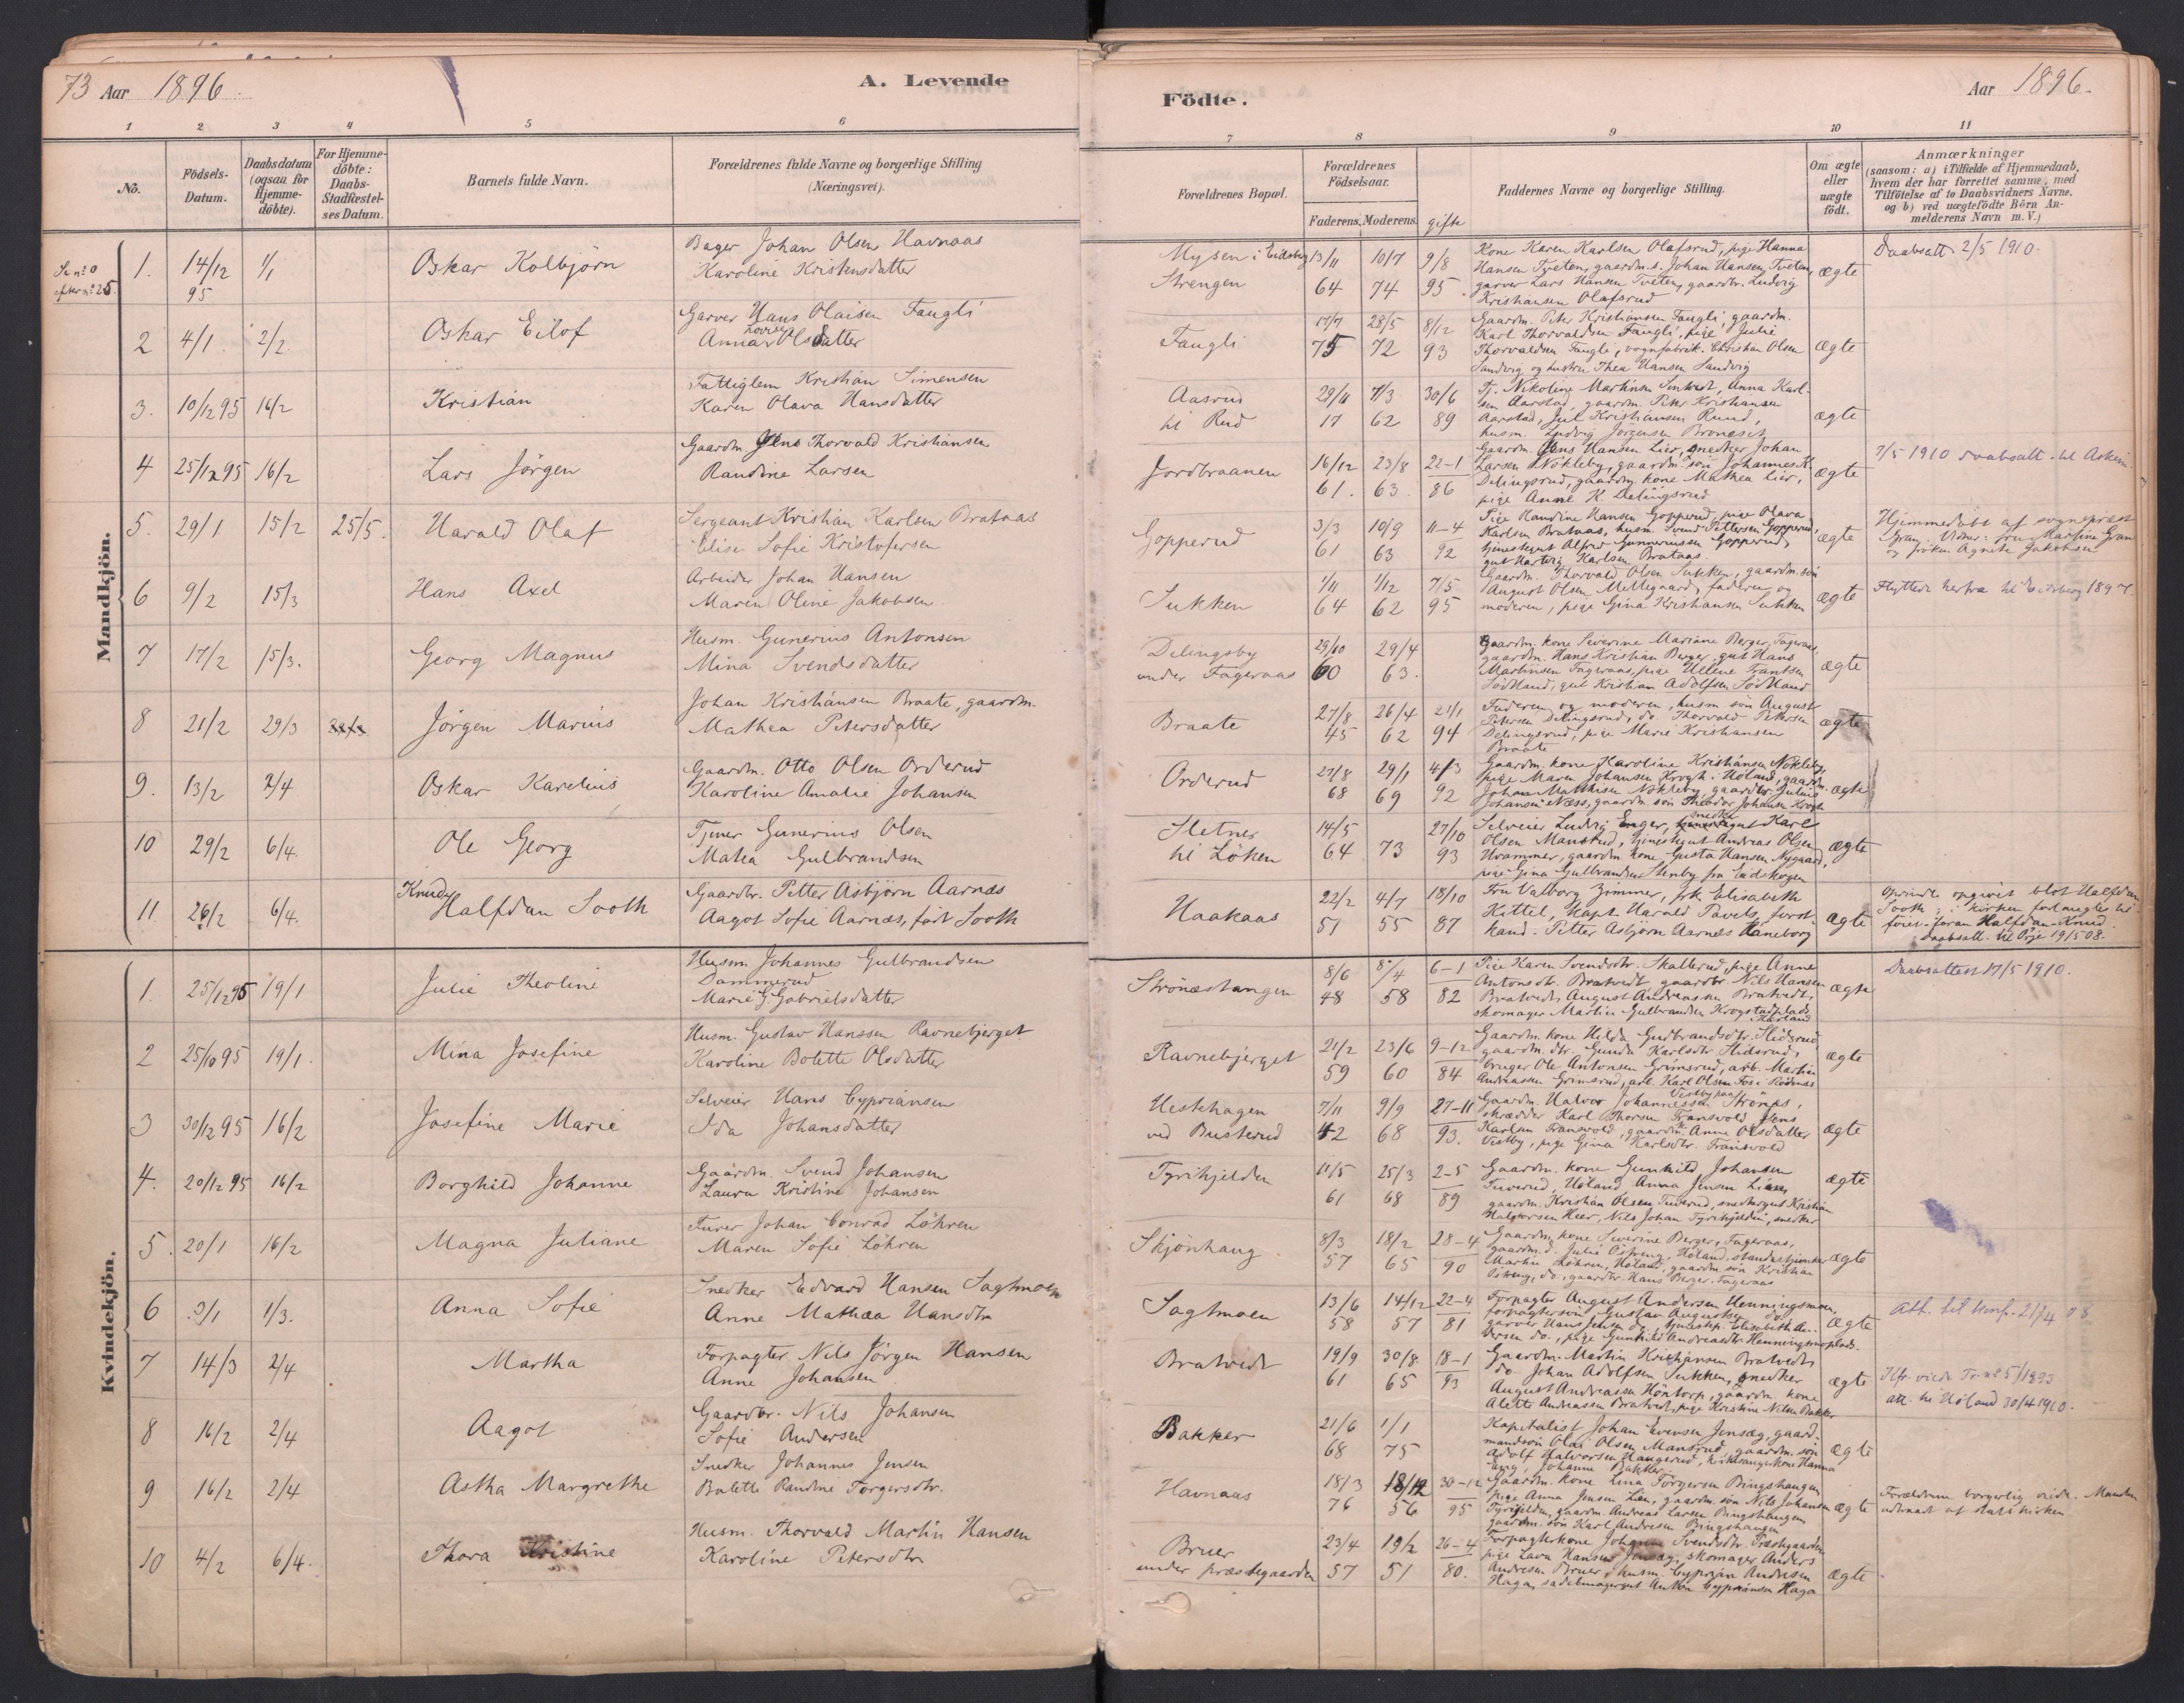 73 Aar 1896. A. Levende
Födte. Aar 1896.
1 2 3 4 5 6
7 8 9 10 11
No.
Födsels-
Datum.
Daabsdatum
(ogsaa for
Hjemme-
döbte).
For Hjemme-
döbte:
Daabs-
Stadfæstel-
ses Datum.
Barnets fulde Navn.
Forældrenes fulde Navne og borgerlige Stilling
(Næringsvei).
Forældrenes Bopæl.
Forældrenes
Födselsaar.
Faderens. Moderens. gifte
Faddernes Navne og borgerlige Stilling.
Om ægte
eller
uægte
födt.
Anmærkninger
(saasom: a) i Tilfælde af Hjemmedaab,
hvem der har forrettet samme, med
Tilföielse af to Daabsvidners Navne.
og b) ved uægtefödte Börn An-
melderens Navn m. V.)
Mandkjön.
1. 14/12 95 1/1 Oskar Kolbjörn
Bager Johan Olsen Havnaas
Karoline Kristensdatter
Mysen i Eidsberg
Strengen
13/11 64 10/7 74 9/8 95
Kone Karen Karlsen Olafsrud, pige Hanna
Hansen Tveten, gaardm.s. Johan Hansen Tveten,
garver Lars Hansen Tveten, gaardbr. Ludvig
Kristiansen Olafsrud
ægte
Daabsatt. 2/5 1910.
2 4/1 2/2 Oskar Eilof
Garver Hans Olaisen Faugli
Anna Lovise Olsdatter
Faugli
17/7 75 28/5 72 8/12 93
Gaardm. Peter Kristiansen Faugli, gaardm.
Karl Thorvaldsen Faugli, pige Julie
Thorvaldsen Faugli, vognfabrik. Christian Olsen
Sandvig og hustru Thea Hansen Sandvig
ægte
3. 10/12 95 16/2 Kristian
Fattiglem Kristian Simensen
Karen Olava Hansdatter
Aasrud
til Rud
17 7/3 62 30/6 89
Aarstad, gaardm. Peter Kristiansen
Aarstad, Jul. Kristiansen Ruud,
husm. Ludvig Jörgensen
ægte
4 25/12 95 16/2 Lars Jörgen
Gaardm. Jens Thorvald Kristiansen
Randine Larsen
Jordbraanen
16/12 61. 23/8 63. 22-1 86
Gaardm. Jens Hansen Lier, snedker Johan
Larsen Nökleby, gaardm. sön Johannes H.
Delingsrud, gaardm. kone Mathea Lier,
pige Anne H. Delingsrud
ægte
7/5 1910 daabsatt. til Askim
5. 29/1 15/2 25/5. Harald Olaf
Sergeant Kristian Karlsen Brataas
Elise Sofie Kristofersen
Gopperud
3/3 61 10/9 63 11-4 92
Pige Randine Hansen Gopperud, pige Olava
Karlsen Brataas, husm. Svend Pettersen Gopperud,
tjenestegut Alfred Gunneriussen Gopperud,
gut Hartvig Karlsen Brataas.
ægte
Hjemmedöbt af sogneprest
Gran. Vidner: fru Martine Gran
og fröken Agnete Jakobsen
6 9/2 15/3 Hans Axel
Arbeider Johan Hansen
Maren Oline Jakobsen
Sukken
1/11 64 1/12 62 7/5 95
Gaardm. Thorvald Olsen Sukken, gaardm. sön
August Olsen Mellegaard, faderen og
moderen, pige Gina Kristiansen Sukken
ægte
Flyttede herfra til Eidsberg 1897.
7 17/2 15/3. Georg Magnus
Husm. Gunerius Antonsen
Mina Svendsdatter
Delingsby
under Fageraas
29/10 60 29/4 63.
Gaardm. kone Severine Mariane Berger, Fageraas,
gaardm. Hans Kristian Berger, gut Hans
Martinsen Fageraas, pige Helene Frantsen
gut Kristian Adolfsen
ægte
8 21/2 29/3 Jörgen Marius
Johan Kristiansen Braate, gaardm.
Mathea Petersdatter
Braate
27/8 45 26/4 62 21/1 94
Faderen og moderen, husm. sön August
Petersen Delingsrud, do. Thorvald Petersen
Delingsrud, pige Marie Kristiansen
Braate
ægte
9. 13/2 2/4 Oskar Karelius
Gaardm. Otto Olsen Orderud
Karoline Amalie Johansen
Orderud
27/8 68 29/1 69 4/3 92
Gaardm. kone Karoline Kristiansen Nökleby,
pige Maren Johansen Krogh i Höland, gaardm.
Johan Mathisen Nökleby, gaardbr. Julius
Johansen Næss, gaardm. sön Theodor Johansen Krogh
ægte
10 29/2 6/4. Ole Georg
Tjener Gunerius Olsen
Matea Gulbrandsen
Sletner
til Löken
14/5 64 73 27/10 93
Selveier Ludvig Enger, snedker Karl
Olsen Manstrud, tjenestegut Andreas Olsen
Hrammer, gaardm. kone Gusta Hansen Nygaard,
pige Gina Gulbrandsen Stenby fra Eidskogen
ægte
11. 26/2 6/4. Knud Halfdan Sooth
Gaardbr. Petter Asbjörn Aarnæs
Aagot Sofie Aarnæs, födt Sooth
Haakaas
22/2 51 4/7 55 18/10 87
Fru Valborg Zimmer, frk. Elisabeth
Kittel, Kapt. Harald Pavels, forst-
kand. Petter Asbjörn Aarnæs Haneborg
ægte
Oprindl. opgivet blot Halfdan
Sooth; i kirken forlangtes til-
föiet foran Halfdan - Knud.
Daabsatt. til Örje 19/5 08.
Kvindekjön.
1. 25/12 95 19/1 Julie Theoline
Husm. Johannes Gulbrandsen
Dammerud
Marie G. Gabrielsdatter
Strönæstangen
8/6 48 8/4 58 6-1 82
Pige Karen Svendsdtr. Skallerud, pige Anne
Antonsdtr. Bratvedt, gaardbr. Nils Hansen
Bratvedt, August Andreassen Bratvedt,
skomager Martin Gulbrandsen Krogstadplads
ægte
Daabsattest 17/5 1910.
2 25/10 95 19/1. Mina Josefine
Husm. Gustav Hanssen Ravnebjerget
Karoline Bolette Olsdatter
Ravnebjerget
21/2 59 23/6 60 9-12 84
Gaardm. kone Hilda Gudbrandsdtr. Slidsrud,
gaardm. dtr. Gunda Karlsdtr. Slidsrud,
bruger Ole Antonsen Grimsrud, arb. Martin
Andreassen Grimsrud, arb. Karl Olsen Fos i Rödenæs
ægte
3 30/12 95 16/2 Josefine Marie
Selveier Hans Cypriansen
Ida Johansdatter
Hestehagen
ved Busterud
7/11 42 9/9 68 27-11 93.
Gaardm. Halvor Johannessen Strömps,
skrædder Karl Thorsen Fransvold, Jens
Karlsen Fransvold, gaardm. k. Anne Olsdatter
Vestby, pige Gina Karlsdtr. Fransvold
ægte
4. 20/12 95 16/2 Borghild Johanne
Gaardm. Svend Johansen
Laura Kristine Johansen
Tyrihjelden
11/5 61 25/3 68 2-5 89
Gaardm. kone Gunhild Johansen
Tuverud, Höland, Anna Jensen Lien,
gaardm. Kristian Olsen Tuverud, snedkergut Kristian
Halvorsen Hier, Nils Johan Tyrihjelden, snedker
ægte
5. 20/1 16/2 Magna Juliane
Furer Johan Conrad Löhren
Maren Sofie Löhren
Skjönhaug
8/3 57 18/2 65 28-4 90
Gaardm. kone Severine Berger, Fageraas,
gaardm. d. Julie Höland, standartjunker
Martin Löhren, Höland, gaardm. sön Kristian
do., gaardbr. Hans Berger Fageraas
ægte
6 3/1 1/3. Anna Sofie
Snedker Edvard Hansen Sagtmoen
Anne Mathea Hansdtr
Sagtmoen
13/6 58 14/12 57 22-4 81
Forpagter August Andersen Henningsmoen,
forpagtersön Gustav Augustsen do.,
garver Hans Jensen do., tjenestep. Elisabeth An-
dersen do., pige Gunhild Andreasdtr. Henningsmoplads.
ægte
Att. til konf. 21/4 08
7 14/3 2/4 Martha
Forpagter Nils Jörgen Hansen
Anne Johansen
Bratvedt
19/9 61 30/8 65 18-1 93
Gaardm. Martin Kristiansen Bratvedt,
do. Johan Adolfsen Sukken, snedker
August Andreassen Höntorp, gaardm. kone
Alette Andreassen Bratvedt, pige Kristine Nilsen Bakker
ægte
Jfr. viede Tr. no 5/1893
att. til Höland 30/4 1910.
8 16/2 2/4 Aagot
Gaardbr. Nils Johansen
Sofie Andersen
Bakker
21/6 68 1/1 75
Kapitalist Johan Evensen Jensæg, gaard-
mandsön Olai Olsen Manstrud, gaardm. sön
Adolf Halvorsen Haugerud, kirkesangerkone Hanna
Johanne Bakker
ægte
9 16/2 2/4 Astha Margrethe
Snedker Johannes Jensen
Bolette Randine Torgersdtr.
Havnaas
18/3 76 18/12 56 30-12 95
Gaardm. kone Lina Torgersen Bingshaugen,
pige Anna Jensen Lien, gaardm. sön Nils Johansen
Tyrihjelden, gaardm. Andreas Larsen Bingshaugen
gaardm. sön Karl Andresen Bingshaugen
ægte
Forældrene borgerlig viede. Manden
udtraadt af statskirken
10 4/2 6/4. Thora Kristine
Husm. Thorvald Martin Hansen
Karoline Petersdtr
Bruer
under præstegaarden
23/4 57 19/2 51 26-4 80.
Forpagterkone Johanne Svendsdtr. Præstgaarden
pige Lava Hansen Jensæg, skomager Anders
Andresen Bruer, husm. Cyprian Andresen
Haga, sadelmagergut Anton Cypriansen Haga
ægte